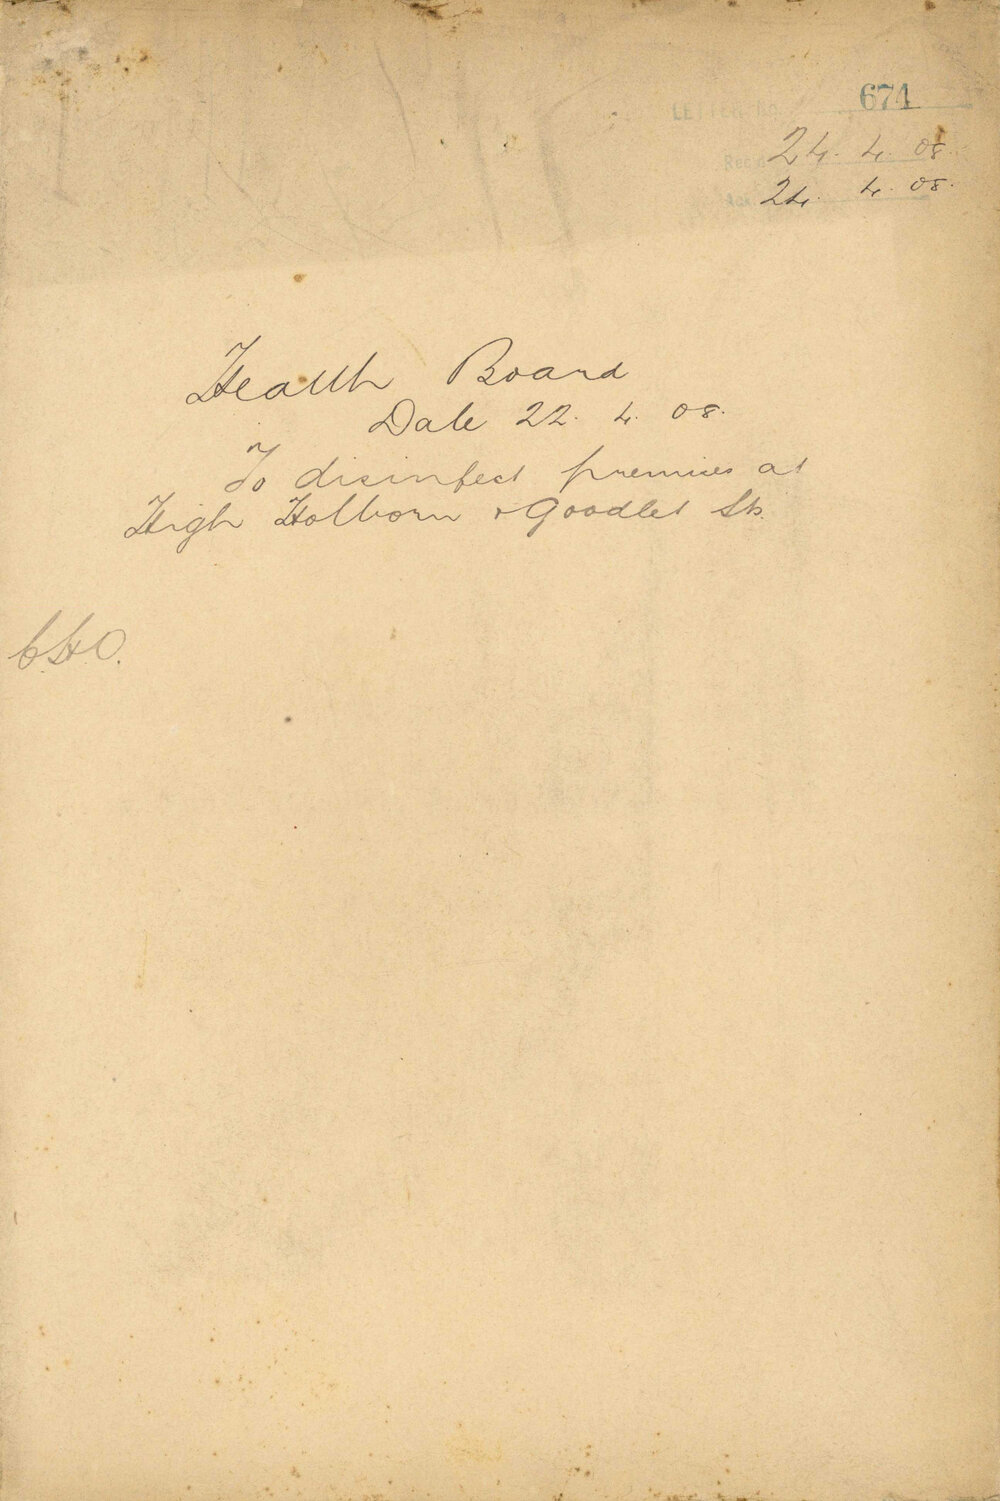 LETTER No. 674
Rec'd 24. 4. 08.
24. 4. 08.
Health Board
Date 22. 4. 08.
To disinfect premises at
High Holborn & Goodlet Sts.
C.H.O.